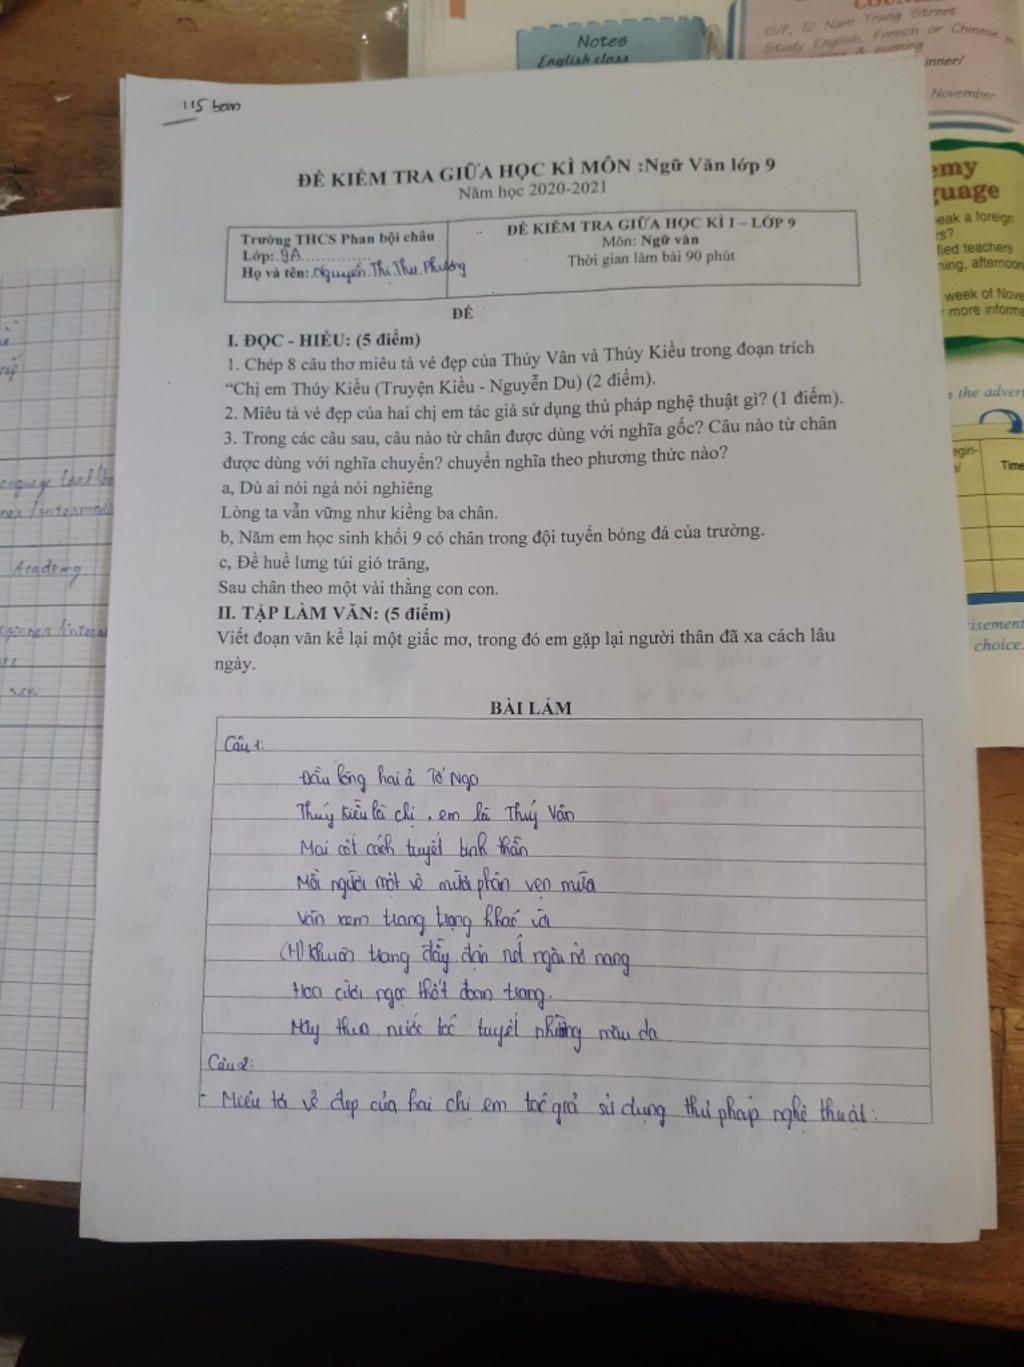 115 bản
Notes
English class
G/F, 12 Nam Trang Street
Study English, French or Chinese in
& evening
inner/
November
ĐỀ KIỂM TRA GIỮA HỌC KÌ MÔN :Ngữ Văn lớp 9
Năm học 2020-2021
Trường THCS Phan bội châu
Lớp: 9A
Họ và tên: Nguyễn Thị Thu Phương
ĐỀ KIỂM TRA GIỮA HỌC KÌ I – LỚP 9
Môn: Ngữ văn
Thời gian làm bài 90 phút
ĐỀ
I. ĐỌC - HIỂU: (5 điểm)
1. Chép 8 câu thơ miêu tả vẻ đẹp của Thúy Vân và Thúy Kiều trong đoạn trích
“Chị em Thúy Kiều (Truyện Kiều - Nguyễn Du) (2 điểm).
2. Miêu tả vẻ đẹp của hai chị em tác giả sử dụng thủ pháp nghệ thuật gì? (1 điểm).
3. Trong các câu sau, câu nào từ chân được dùng với nghĩa gốc? Câu nào từ chân
được dùng với nghĩa chuyển? chuyển nghĩa theo phương thức nào?
a, Dù ai nói ngả nói nghiêng
Lòng ta vẫn vững như kiềng ba chân.
b, Năm em học sinh khối 9 có chân trong đội tuyển bóng đá của trường.
c, Đề huề lưng túi gió trăng,
Sau chân theo một vài thằng con con.
II. TẬP LÀM VĂN: (5 điểm)
Viết đoạn văn kể lại một giấc mơ, trong đó em gặp lại người thân đã xa cách lâu
ngày.
BÀI LÀM
Câu 1:
Đầu lòng hai ả Tố Nga
Thuý Kiều là chị, em là Thuý Vân
Mai cốt cách tuyết tinh thần
Mỗi người một vẻ mười phân vẹn mười
Vân xem trang trọng khác vời
(H) Khuôn trang đầy đặn nét ngài nở nang
Hoa cười ngọc thốt đoan trang.
Mây thua nước tóc tuyết nhường màu da
Câu 2:
- Miêu tả vẻ đẹp của hai chị em tác giả sử dụng thủ pháp nghệ thuật:
emy
guage
eak a foreign
rs?
fied teachers
ning, afternoon
week of Nove
more informa
the adver
egin-
Time
isement
choice.
Academy
new